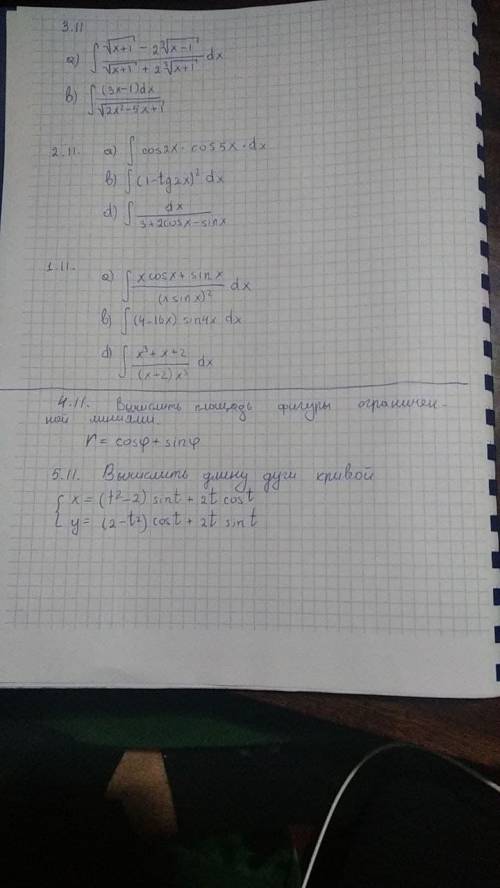 3.11
a) ∫ (√(x+1) - 2∛(x-1)) / (√(x+1) + 2∛(x+1)) dx
b) ∫ (3x-1)dx / √(2x²-5x+1)
2.11. a) ∫ cos2x · cos5x · dx
b) ∫ (1-tg2x)² dx
d) ∫ dx / (3+2cosx-sinx)
1.11. a) ∫ (xcosx + sinx) / (x sinx)² dx
b) ∫ (4-16x) sin4x dx
d) ∫ (x³+x+2) / ((x+2)x³) dx
4.11. Вычислить площадь фигуры ограничен-
ной линиями.
r = cosφ + sinφ
5.11. Вычислить длину дуги кривой
{ x = (t²-2) sint + 2t cost
{ y = (2-t²) cost + 2t sint